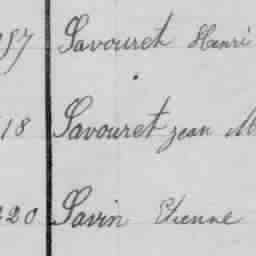 57 Savouret Henri
18 Savouret jean M
220 Savin Etienne